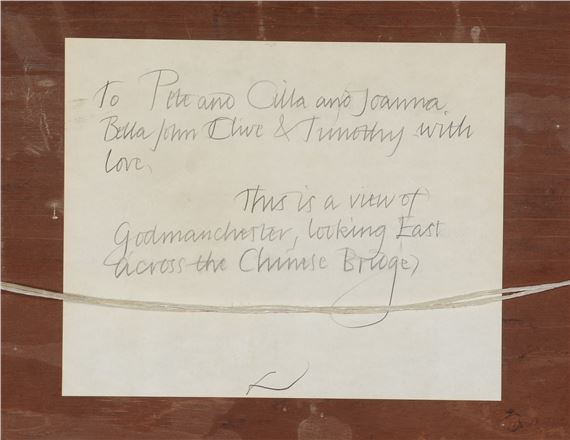 To Pete and Cilla and Joanna
Bella John Clive & Timothy with
love.
This is a view of
Godmanchester, looking East
across the Chinese Bridge)